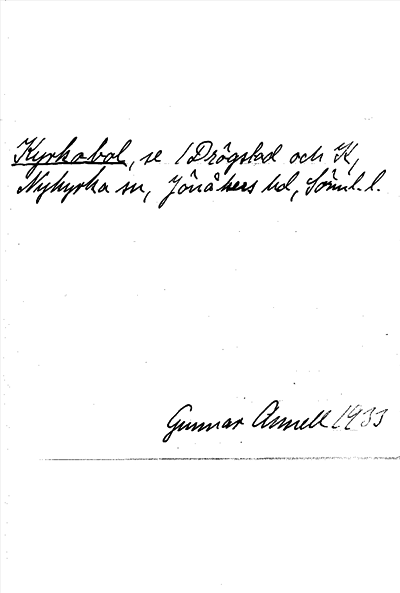 Kyrkobol, se /Drögstad och K,
Nykyrka sn, Jönåkers hd, Söml. l.
Gunnar Annell 1933